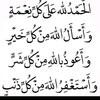 الْحَمْدُ لِلَّهِ عَلَى كُلِّ نِعْمَةٍ
وَأَسْأَلُ اللهَ مِنْ كُلِّ خَيْرٍ
وَأَعُوذُ بِاللهِ مِنْ كُلِّ شَرٍّ
وَأَسْتَغْفِرُ اللهَ مِنْ كُلِّ ذَنْبٍ